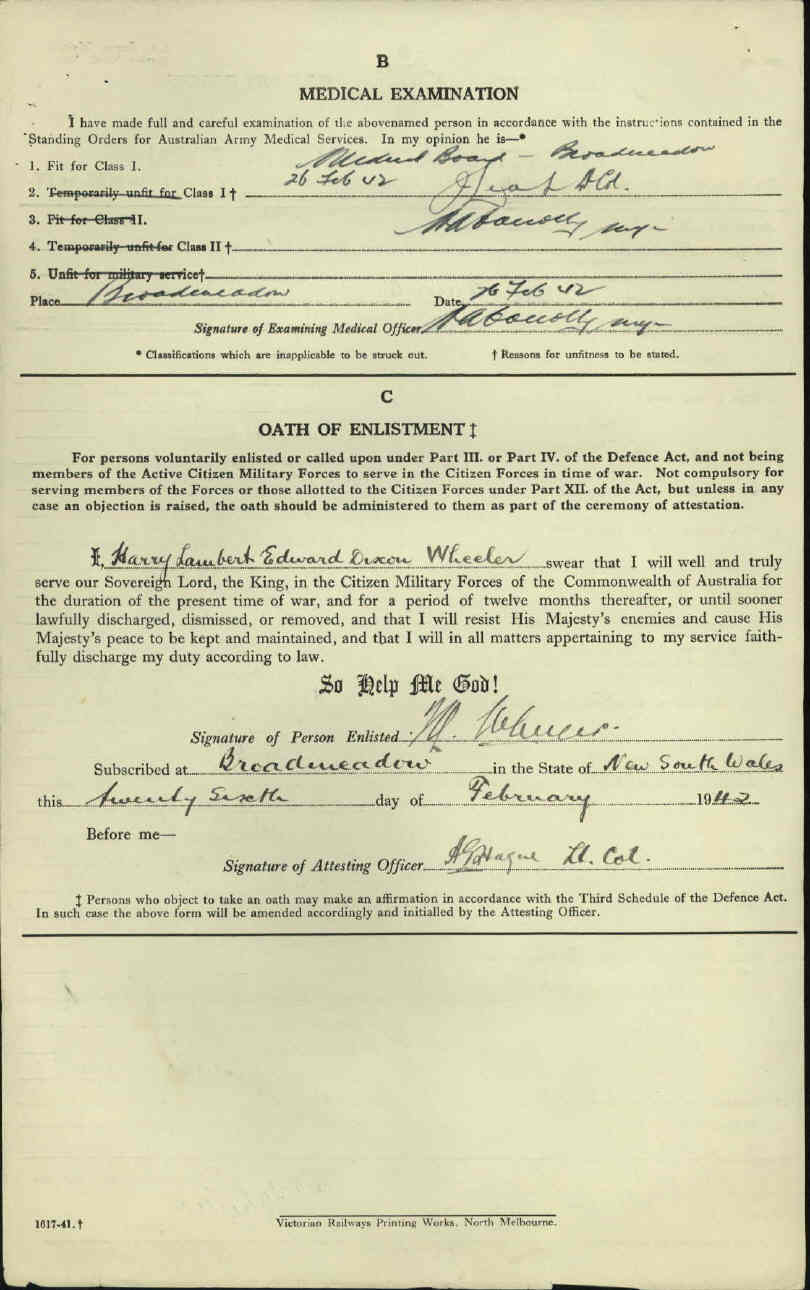 B
MEDICAL EXAMINATION
I have made full and careful examination of the abovenamed person in accordance with the instructions contained in the
Standing Orders for Australian Army Medical Services. In my opinion he is—*
1. Fit for Class I. Medical Board – Broadmeadow
26 Feb 42
2. Temporarily unfit for Class I †
3. Fit for Class II.
4. Temporarily unfit for Class II †
5. Unfit for military service†
Place Broadmeadow Date 26 Feb 42
Signature of Examining Medical Officer
* Classifications which are inapplicable to be struck out. † Reasons for unfitness to be stated.
C
OATH OF ENLISTMENT ‡
For persons voluntarily enlisted or called upon under Part III. or Part IV. of the Defence Act, and not being
members of the Active Citizen Military Forces to serve in the Citizen Forces in time of war. Not compulsory for
serving members of the Forces or those allotted to the Citizen Forces under Part XII. of the Act, but unless in any
case an objection is raised, the oath should be administered to them as part of the ceremony of attestation.
I, Harry Lambert Edward Dixon Wheeler swear that I will well and truly
serve our Sovereign Lord, the King, in the Citizen Military Forces of the Commonwealth of Australia for
the duration of the present time of war, and for a period of twelve months thereafter, or until sooner
lawfully discharged, dismissed, or removed, and that I will resist His Majesty's enemies and cause His
Majesty's peace to be kept and maintained, and that I will in all matters appertaining to my service faith-
fully discharge my duty according to law.
So Help Me God!
Signature of Person Enlisted H. Wheeler.
Subscribed at Broadmeadow in the State of New South Wales
this twenty sixth day of February 1942
Before me—
Signature of Attesting Officer A G Hague Lt. Col.
‡ Persons who object to take an oath may make an affirmation in accordance with the Third Schedule of the Defence Act.
In such case the above form will be amended accordingly and initialled by the Attesting Officer.
1617-41.†
Victorian Railways Printing Works. North Melbourne.